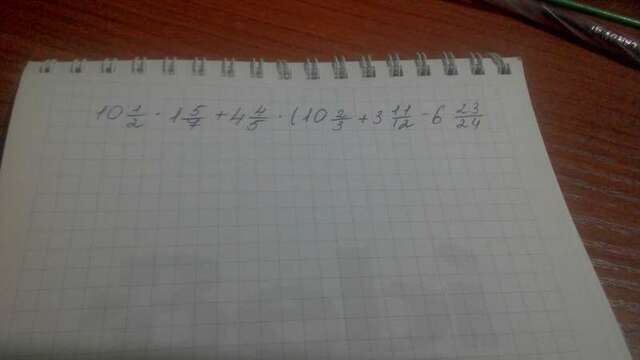 10 1/2 · 1 5/7 + 4 4/5 · (10 2/3 + 3 11/12 - 6 23/24